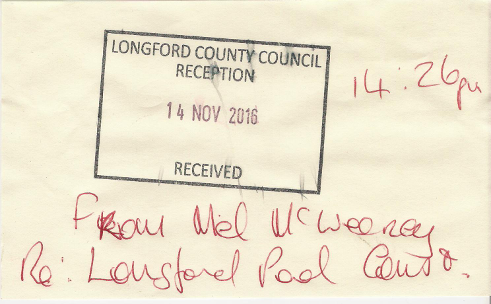 LONGFORD COUNTY COUNCIL
RECEPTION
14 NOV 2016
RECEIVED
14:26pm
From Mel McWeeney
Re: Longford Pool Const.